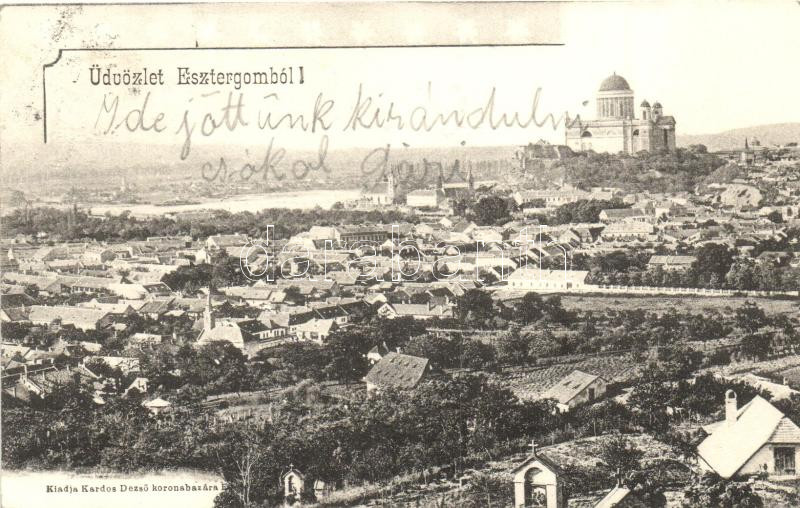 Üdvözlet Esztergomból!
Ide jöttünk kirándulni
csókol Gári
darabanth
Kiadja Kardos Dezső koronabazára